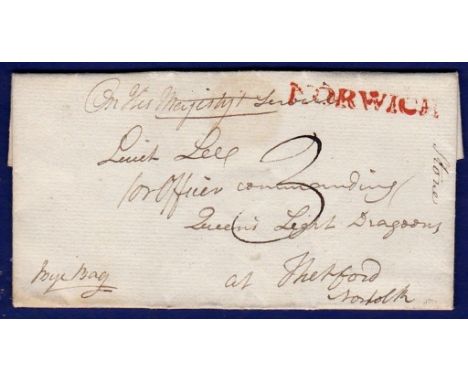 On His Majesty's Service
NORWICH
Lieut Lee
3
or Officer commanding
Queen's Light Dragoons
at Thetford
Norfolk
Bye Bag
Stone